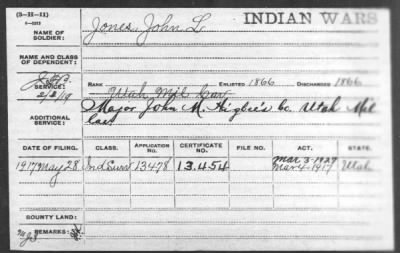 (3-H-11)
INDIAN WARS
NAME OF SOLDIER: Jones, John L.
NAME AND CLASS OF DEPENDENT:
SERVICE: RANK ENLISTED 1866 DISCHARGED 1866
2/2/19 Utah Mil Cav
Major John M. Higbee's Co. Utah Mil
ADDITIONAL SERVICE: Cav
DATE OF FILING. CLASS. APPLICATION NO. CERTIFICATE NO. FILE NO. ACT. STATE.
Mar 3-1927
1917 May 28 Ind Surv 13478 13.454 Mar 4-1917 Utah
COUNTY LAND:
REMARKS: